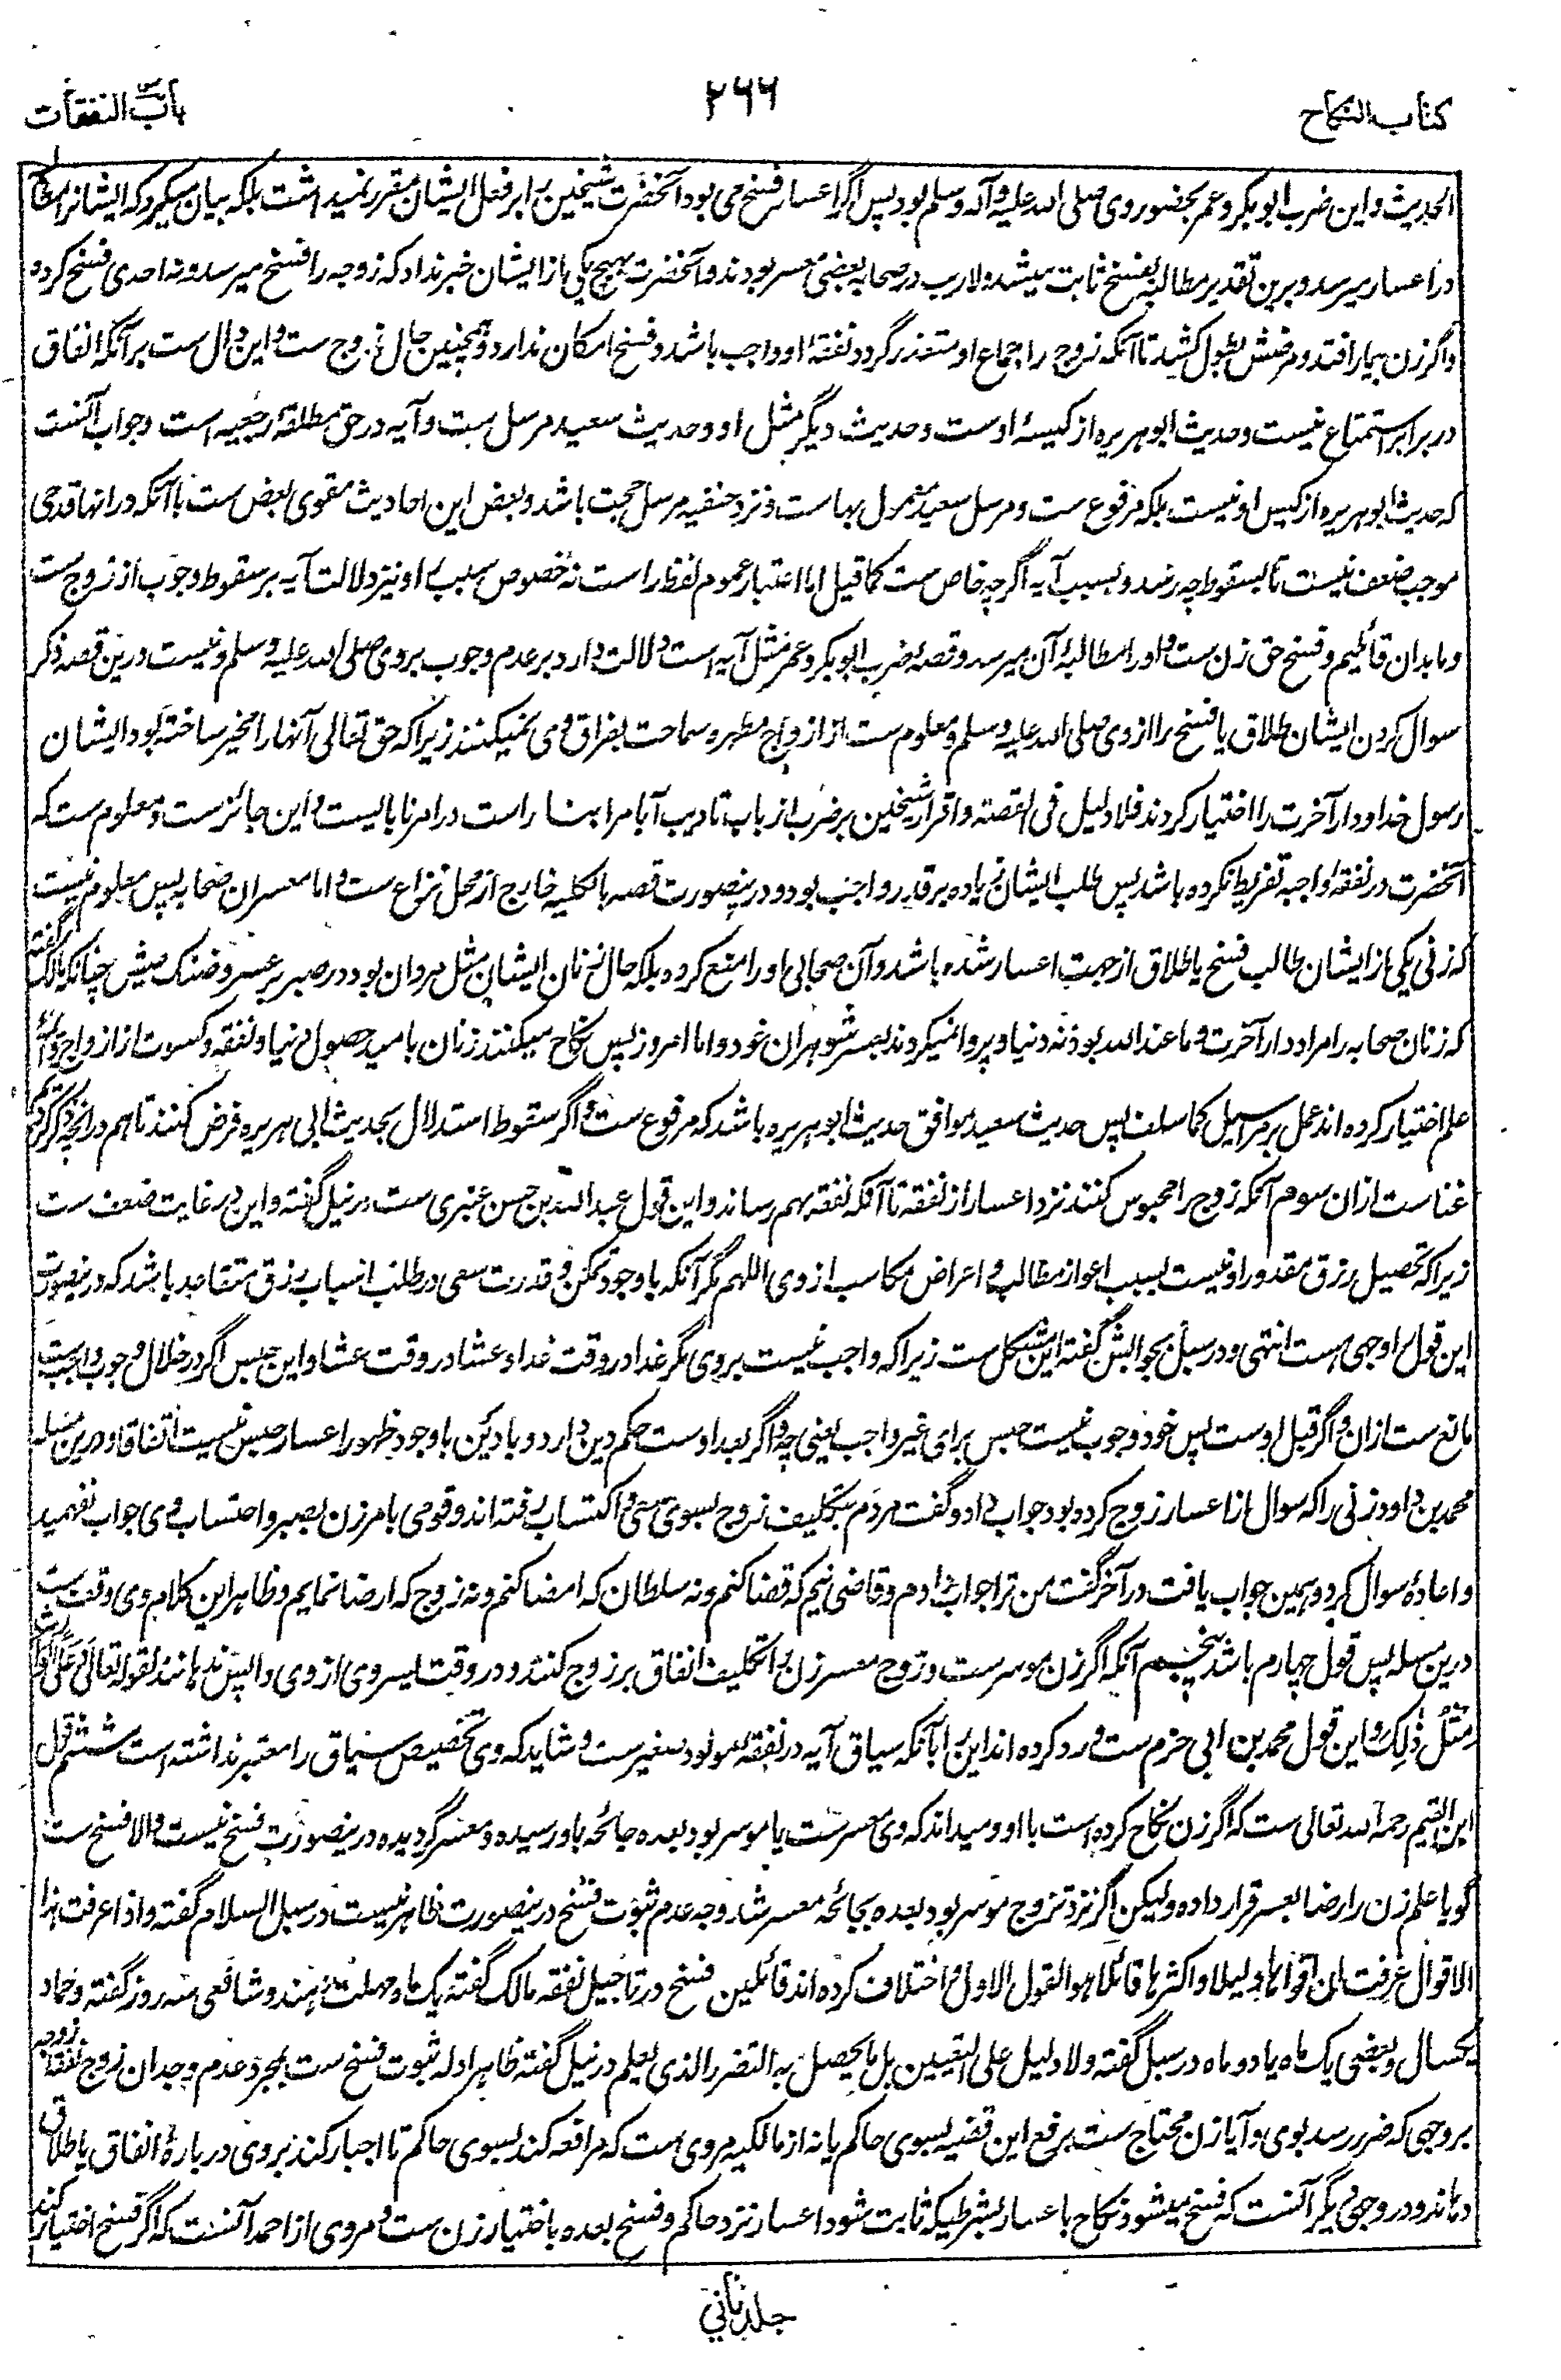 کتاب النکاح
۲۶۶
باب النفقات
الحدیث و این ضرب ابوبکر و عمر بحضور وی صلی الله علیه وآله وسلم بود پس اگر اعسار فسخ می بود آنحضرت شیخین را بر فعل ایشان مقرر نمیداشت بلکه بیان میکرد که ایشانرا مطالبه
در اعسار میرسد و برین تقدیر مطالبه فسخ ثابت میشد و لاریب در صحابه بعضی معسر بودند و آنحضرت بهیچ یکی از ایشان خبر نداد که زوجه را فسخ میرسد و نه احدی فسخ کرد و
و اگر زن بیمار افتد و مرضش بطول کشید تا آنکه زوج را جماع او متعذر گردد نفقهٔ او واجب باشد و فسخ امکان ندارد و همچنین حال زوج ست و این دال ست برآنکه انفاق
در برابر استمتاع نیست و حدیث ابوهریره از کیسهٔ اوست و حدیث دیگر مثل او و حدیث سعید مرسل ست و آیه در حق مطلقهٔ رجعیه است و جواب آنست
که حدیث ابوهریره از کیس او نیست بلکه مرفوع ست و مرسل سعید معمول بهاست و نزد حنفیه مرسل حجت باشد و بعض این احادیث مقوی بعض ست باآنکه درانها قدحی
موجب ضعف نیست تا بسقوط چه رسد و بسبب آیه اگرچه خاص ست کما قیل اما اعتبار عموم لفظ راست نه خصوص سبب را و نیز دلالت آیه بر سقوط وجوب از زوج ست
و ما بدان قائلیم و فسخ حق زن ست و او را مطالبهٔ آن میرسد و قصهٔ ضرب ابوبکر و عمر مثل آیه است دلالت دارد بر عدم وجوب بر وی صلی الله علیه وسلم و نیست درین قصه ذکر
سوال کردن ایشان طلاق یا فسخ را از وی صلی الله علیه وسلم و معلوم ست از ازواج مطهره سماحت بفراق وی نمیکنند زیرا که حق تعالی آنها را مخیر ساخته بود ایشان
رسول خدا و دار آخرت را اختیار کردند فلا دلیل فی القصة و اقرار شیخین بر ضرب از باب تادیب آبا مر ابنا راست در امر نابایست و این جائزست و معلوم ست که
آنحضرت در نفقهٔ واجبه تفریط نکرده باشد پس طلب ایشان زیاده بر قدر واجب بود و درینصورت قصه بالکلیه خارج از محل نزاع ست و اما معسران صحابه پس معلوم نیست
که زنی یکی از ایشان طالب فسخ یا طلاق از جهت اعسار شده باشد و آن صحابی او را منع کرده بلکه حال زنان ایشان مثل مردان بود در صبر بر عسر و ضنک عیش چنانکه مالک گفته
که زنان صحابه را مراد دار آخرت و ما عند الله بود نه دنیا و پروا نمیکردند بعسر شوهران خود و اما امروز پس نکاح میکنند زنان بامید حصول دنیا و نفقه و کسوت از ازواج و ائمه
علم اختیار کرده اند عمل بر مراسیل کما سلف پس حدیث سعید موافق حدیث ابوهریره باشد که مرفوع ست و اگر سقوط استدلال بحدیث ابی هریره فرض کنند تا هم در آنچه ذکر کردیم
غناست ازان سوم آنکه زوج را محبوس کنند نزد اعسار از نفقه تا آنکه نفقه بهم رساند و این قول عبدالله بن حسن عنبری ست در نیل گفته و این در غایت ضعف ست
زیرا که تحصیل رزق مقدور او نیست بسبب اعواز مطالب و اعراض مکاسب از وی اللهم مگر آنکه باوجود تمکن و قدرت سعی در طلب اسباب رزق متقاعد باشد که درینصورت
این قول را وجهی هست انتهی و در سبل بجوابش گفته این مشکل ست زیرا که واجب نیست بر وی مگر غدا در وقت غدا و عشا در وقت عشا و این حبس اگر در خلال وجوب واجب ست
مانع ست ازان و اگر قبل اوست پس خود وجوب نیست حبس برای غیر واجب یعنی چه و اگر بعد اوست حکم دین دارد و با دین باوجود ظهور اعسار حبس نیست اتفاقا و درین مسئله
محمد بن داود زنی را که سوال از اعسار زوج کرده بود جواب داد و گفت مردم بتکلیف زوج بسوی سعی و اکتساب رفته اند و قومی بامر زن بصبر و احتساب وی جواب نفهمید
و اعادهٔ سوال کرد و همین جواب یافت در آخر گفت من ترا جواب دادم و قاضی نیم که قضا کنم و نه سلطان که امضا کنم و نه زوج که ارضا نمایم و ظاهر این کلام وی وقف ست
درین مسئله پس قول چهارم باشد پنجم آنکه اگر زن موسر ست و زوج معسر زن را تکلیف انفاق بر زوج کنند و در وقت ایسر وی از وی واپس ندهانند لقوله تعالی وَعَلَى الْوَارِثِ
مِثْلُ ذٰلِكَ و این قول محمد بن ابی حزم ست و رد کرده اند این را بآنکه سیاق آیه در نفقهٔ مولود صغیر ست و شاید که وی تخصیص سیاق را معتبر نداشته است ششم قول
ابن القیم رحمه الله تعالی ست که اگر زن نکاح کرده است با او و میداند که وی معسر ست یا موسر بود بعده جائحه باو رسیده و معسر گردیده درینصورت فسخ نیست و الا فسخ ست
گویا علم زن را رضا بعسر قرار داده ولیکن اگر نزد تزوج موسر بود بعده بجائحه معسر شد وجه عدم ثبوت فسخ درینصورت ظاهر نیست در سبل السلام گفته واذا عرفت هذا
الاقوال عرفت ان اقواها دلیلا و اکثرها قائلا هو القول الاول و اختلاف کرده اند قائلین فسخ در تاجیل نفقه مالک گفته یک ماه مهلت دهند و شافعی سه روز گفته و حماد
یکسال و بعضی یک ماه یا دو ماه در سبل گفته ولا دلیل علی التعیین بل ما یحصل به التضرر الذی یعلم در نیل گفته ظاهر ادله ثبوت فسخ ست بمجرد عدم وجدان زوج نفقهٔ زوجه
بروجهی که ضرر رسد بوی و آیا زن محتاج ست برفع این قضیه بسوی حاکم یا نه از مالکیه مروی ست که مرافعه کند بسوی حاکم تا اجبار کند بر وی دربارهٔ انفاق یا طلاق
دهاند و در وجهی دیگر آنست که فسخ میشود نکاح باعسار بشرطیکه ثابت شود اعسار نزد حاکم و فسخ بعده باختیار زن ست و مروی از احمد آنست که اگر فسخ اختیار کند
جلد ثانی